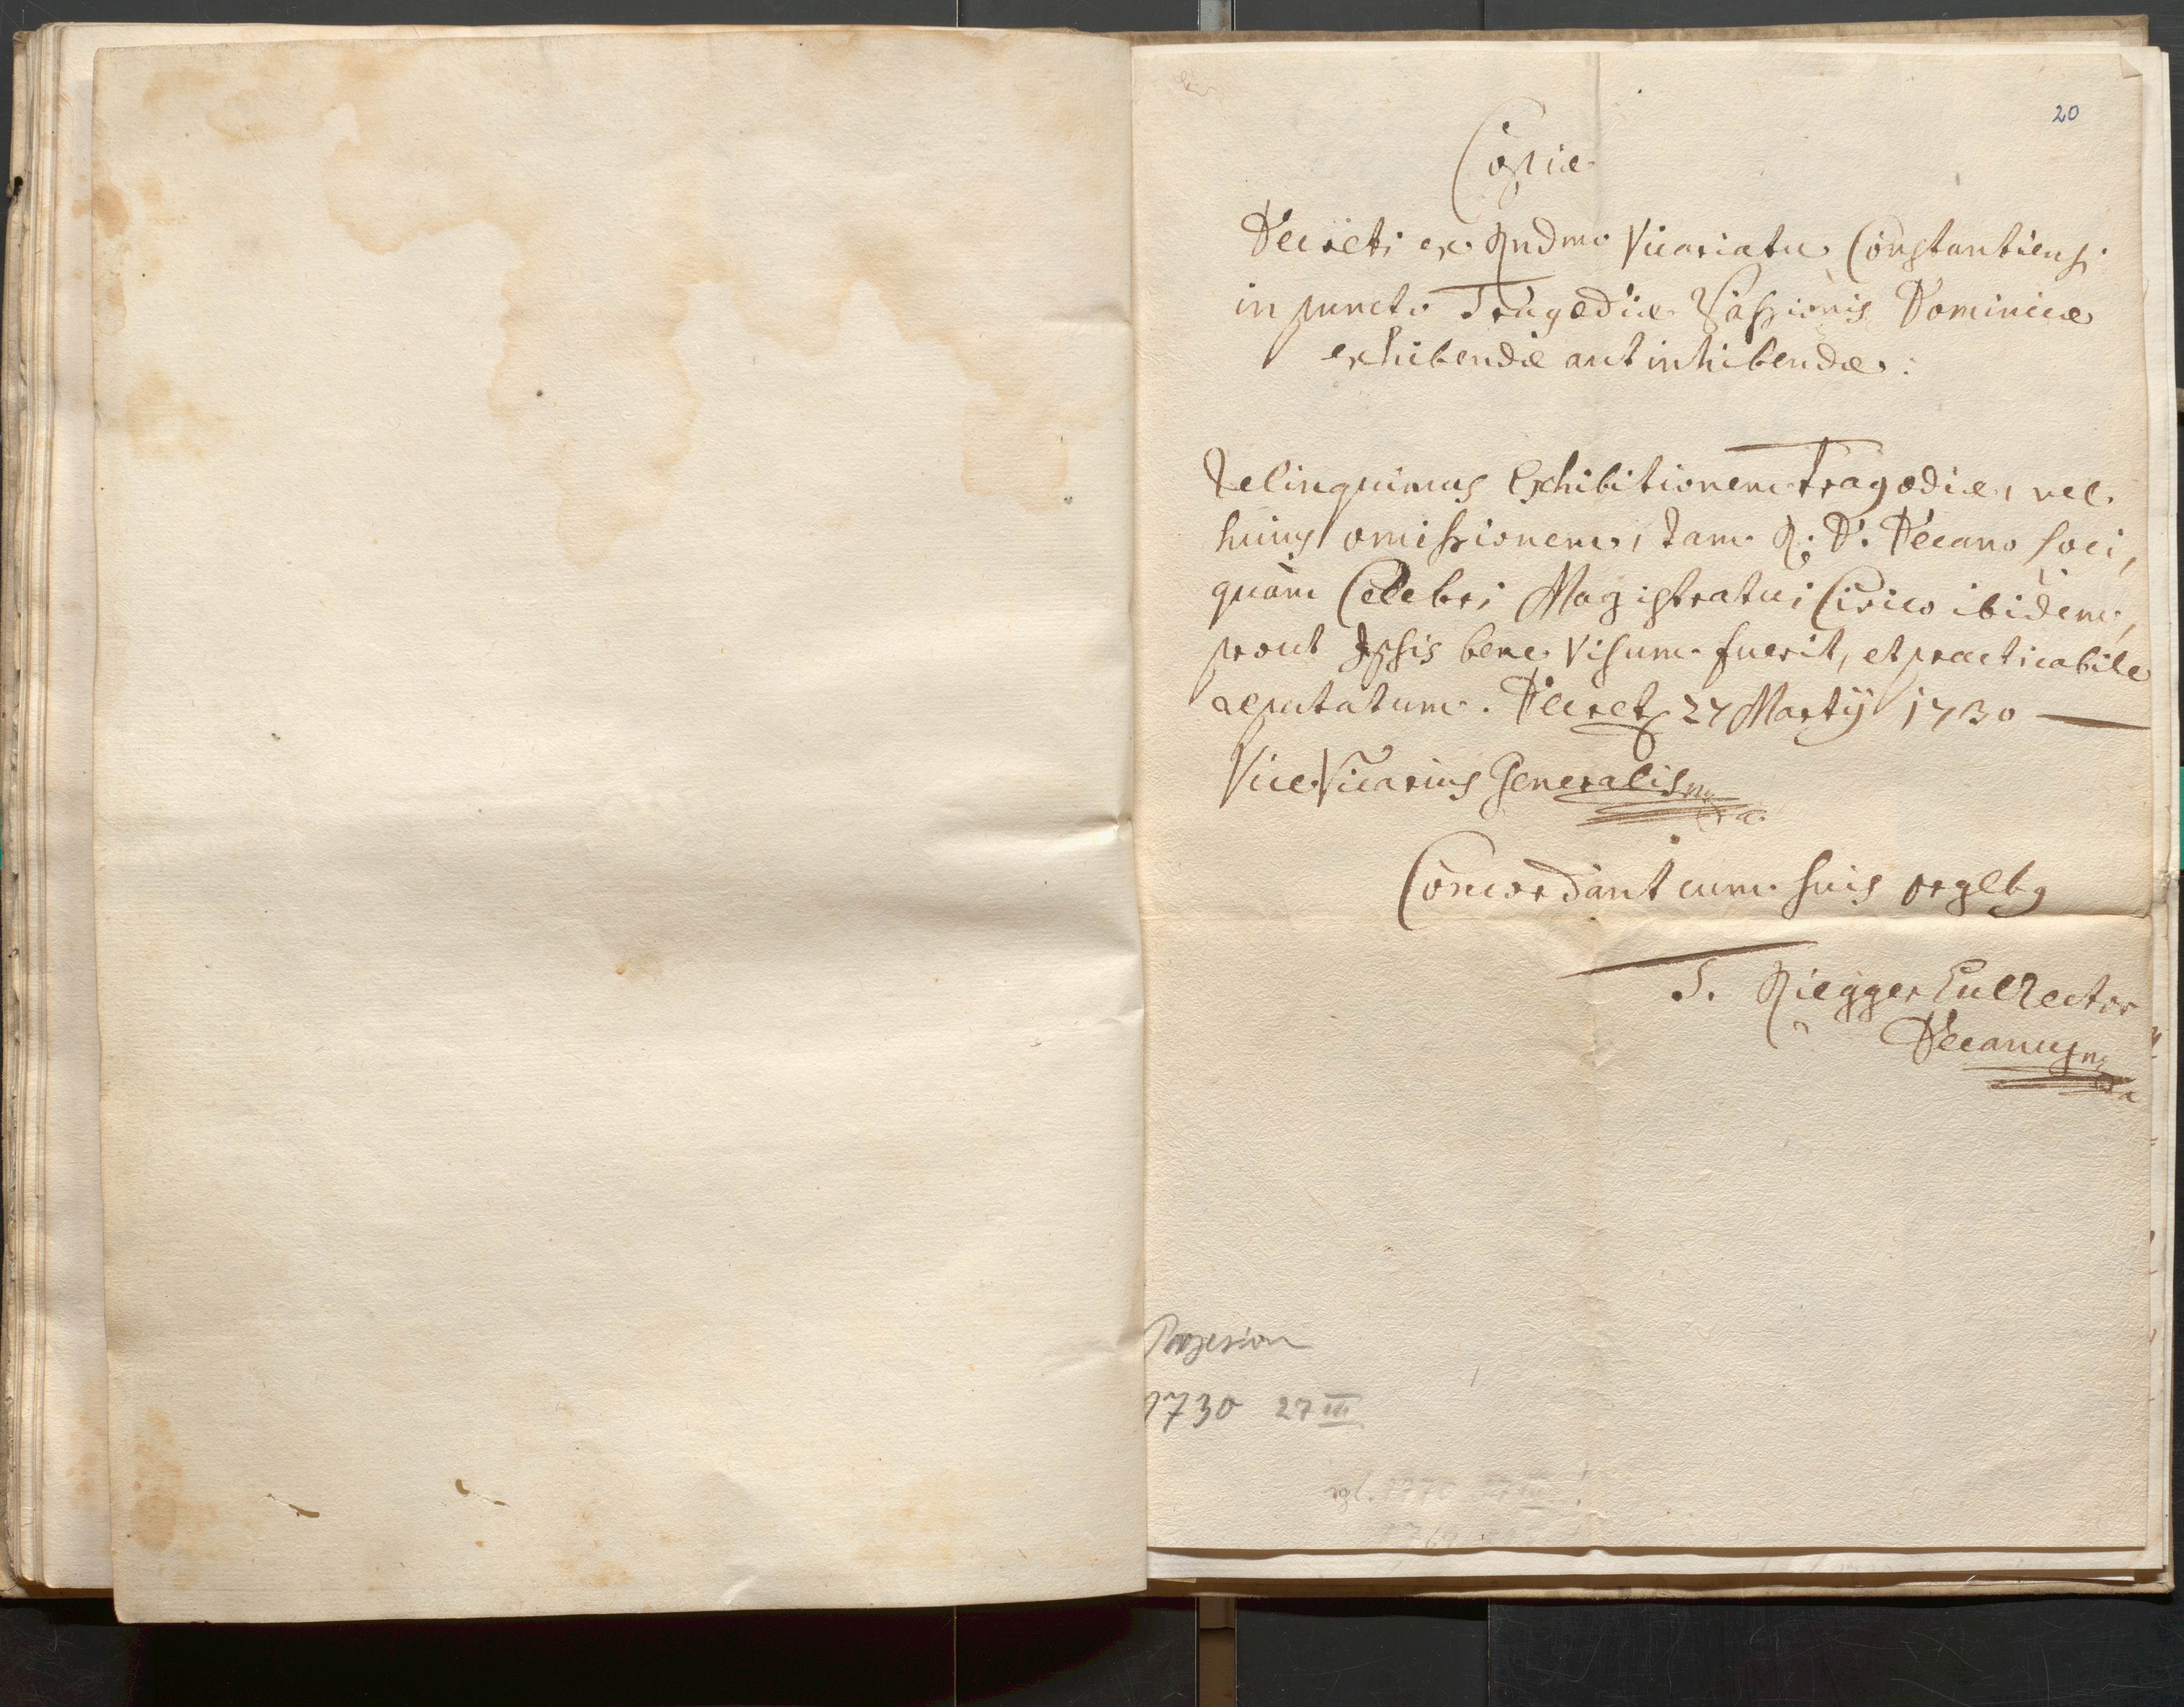 20
Copia
Decreti ex Rndmo Vicariatu Constantiensi
in puncto Tragædiæ Passionis Dominicæ
exhibendæ aut inhibendæ:
Relinquimus Exhibitionem Tragœdiæ, vel
huius omissionem, tam R: D. Decano loci,
quàm Celebri Magistratui Civico ibidem,
prout Ipsis bene visum fuerit, et practicabile
reputatum. Decret 27 Martij 1730
Vice Vicarius Generalis mpa
Concordant cum suis orglbg
J. Riegger Eccl Rector
Decanus mpa
Prozession
1730 27 III
vgl.